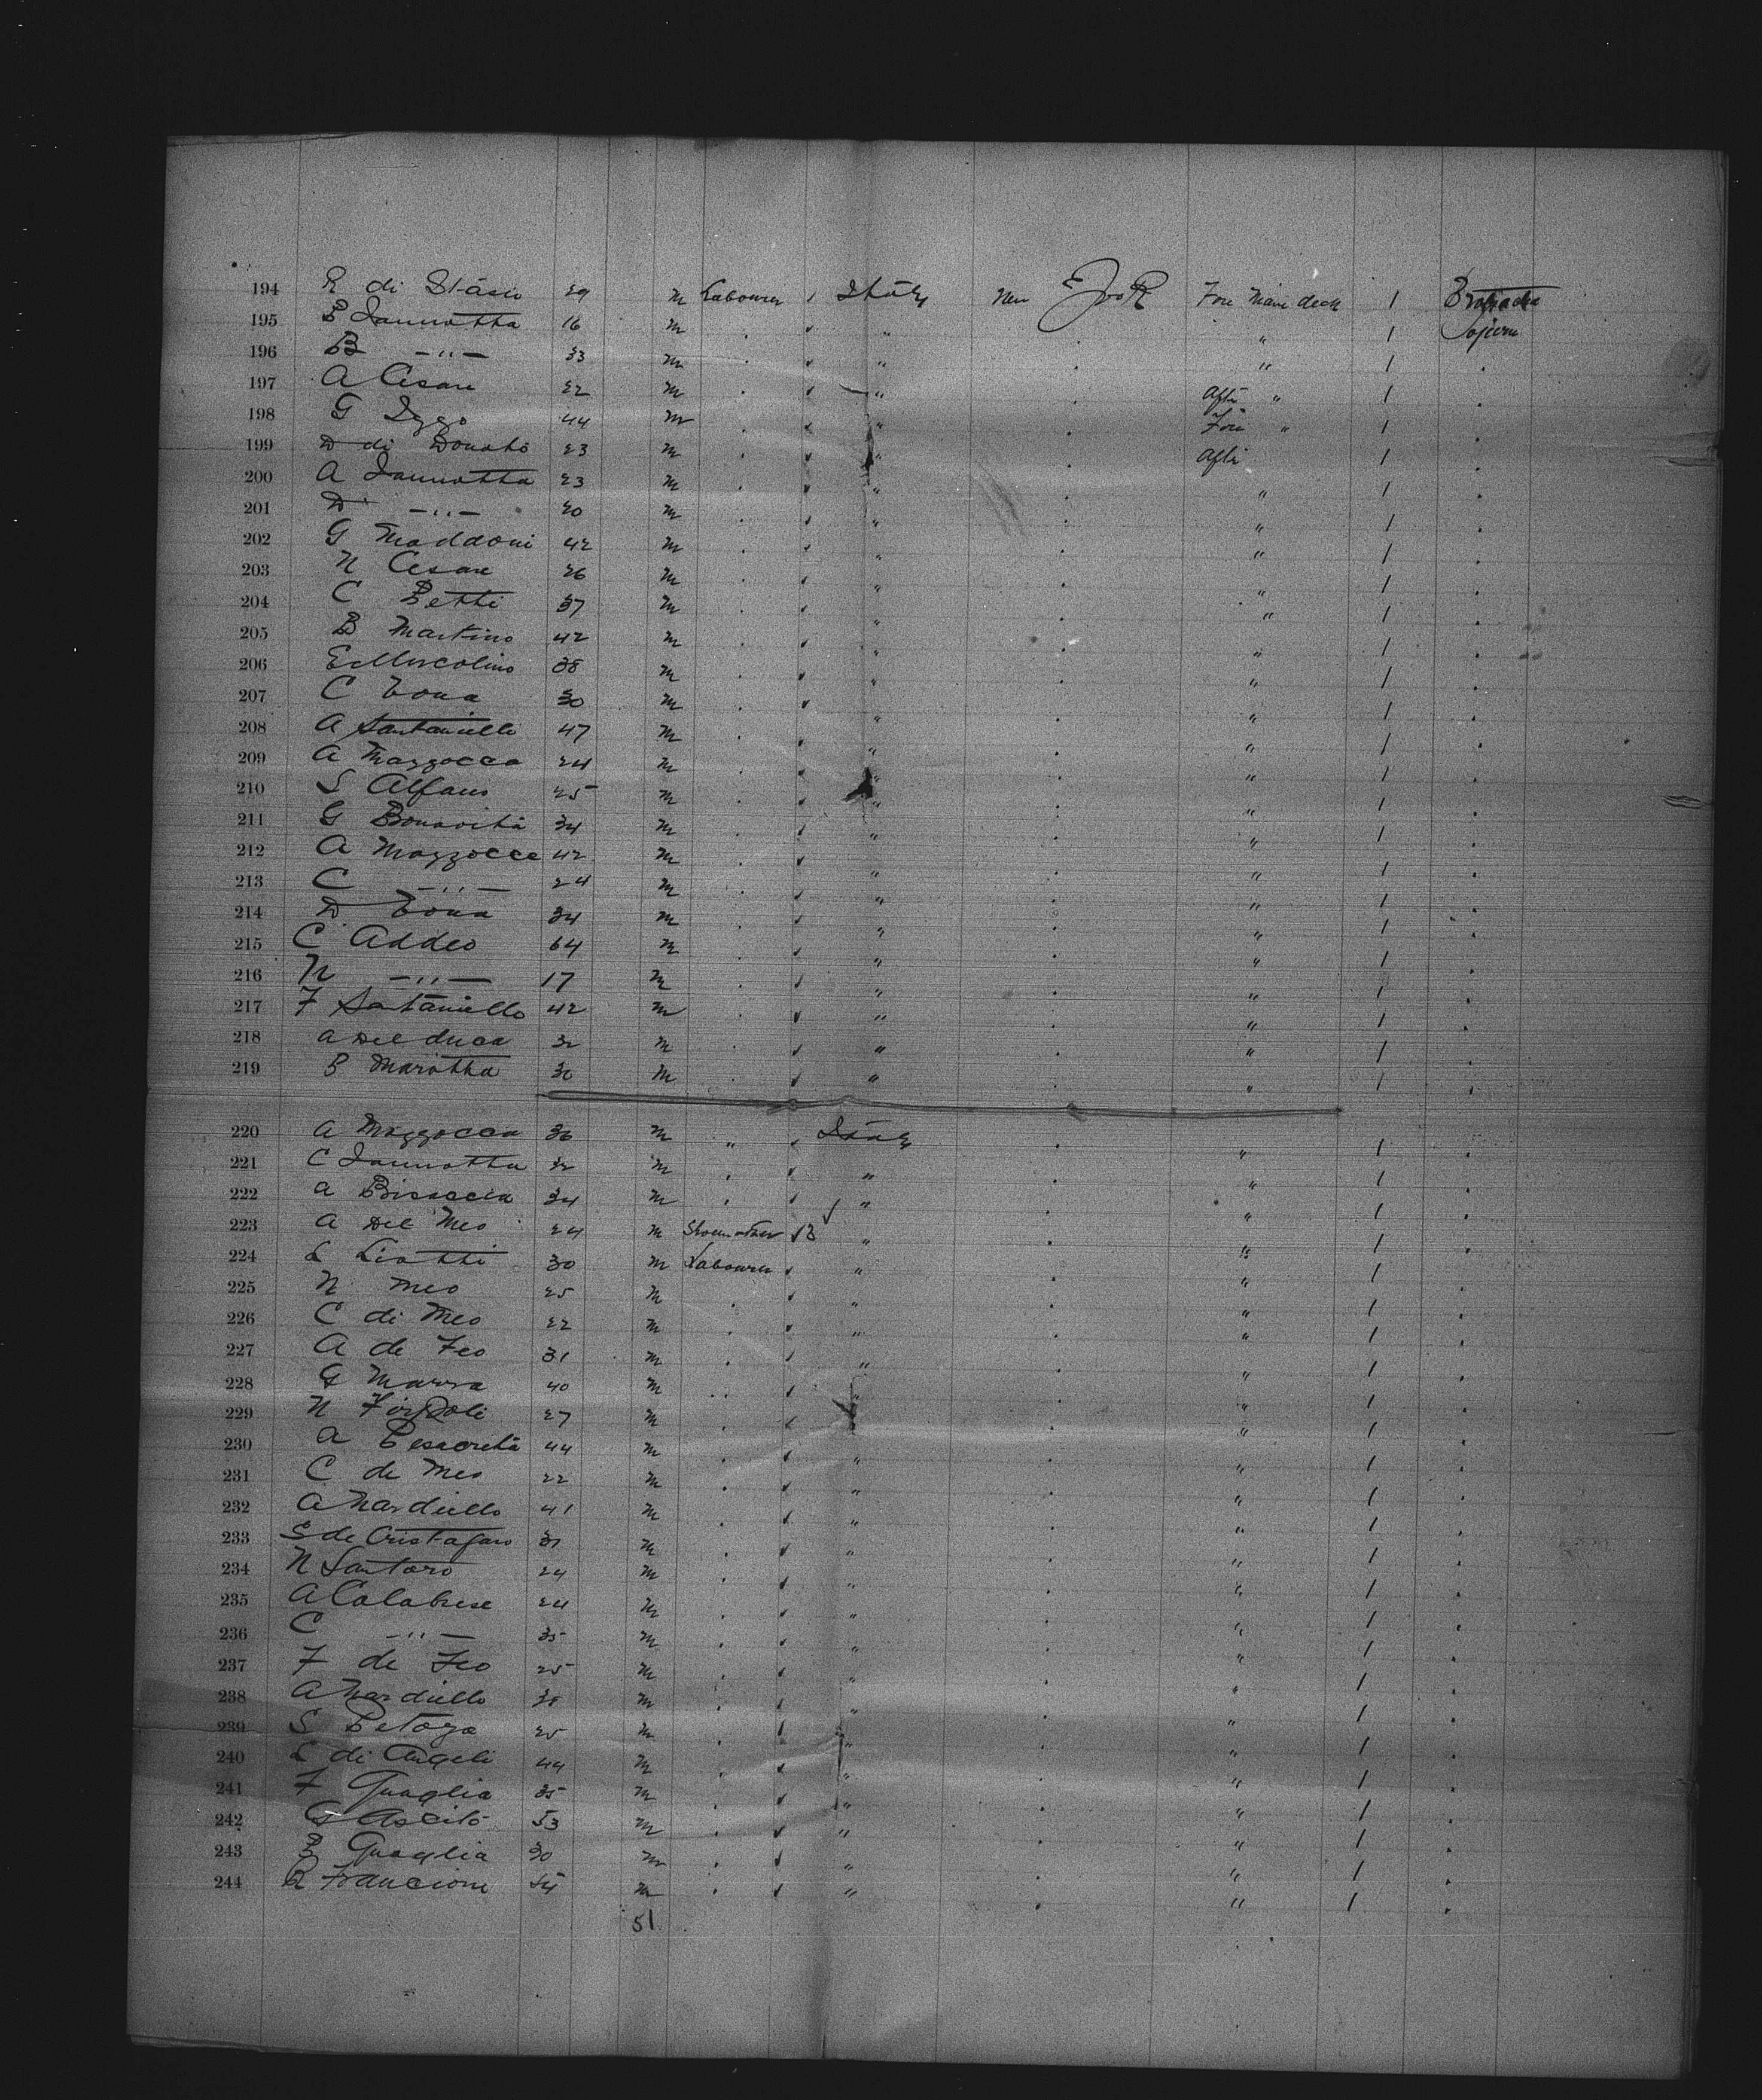 194 R di Stasio 29 m Labourer Italy New York Fore Main deck 1
195 B Iannotta 16 m " " 1 Sojourn
196 B —"— 33 m " " 1
197 A Cesare 22 m " After " 1
198 G Izzo 44 m " Fore " 1
199 D di Donato 23 m " After 1
200 A Iannotta 23 m " " 1
201 D —"— 20 m " " 1
202 G Maddoni 42 m " " 1
203 N Cesare 26 m " " 1
204 C Petti 37 m " " 1
205 B Martino 42 m " " 1
206 38 m " " 1
207 C Zona 30 m " " 1
208 A Santaniello 47 m " " 1
209 A Mazzocca 24 m " " 1
210 S Alfano 25 m " " 1
211 G Bonavita 34 m " " 1
212 A Mazzocca 42 m " " 1
213 C —"— 24 m " " 1
214 D Zona 34 m " " 1
215 C Addeo 64 m " " 1
216 N —"— 17 m " " 1
217 F Santaniello 42 m " " 1
218 A Del duca 32 m " " 1
219 B Marotta 30 m " " 1
220 A Mazzocca 36 m " Italy " 1
221 C Iannotta 32 m " " 1
222 A Bisaccia 34 m " " 1
223 A Del Meo 24 m Shoemaker " " 1
224 L Liotti 30 m Labourer " " 1
225 N Meo 25 m " " 1
226 C di Meo 22 m " " 1
227 A de Feo 31 m " " 1
228 G Marra 40 m " " 1
229 N 27 m " " 1
230 A 44 m " " 1
231 C de Meo 22 m " " 1
232 A Nardiello 41 m " " 1
233 S de Cristofaro 31 m " " 1
234 N Santoro 24 m " " 1
235 A Calabrese 24 m " " 1
236 C —"— 35 m " " 1
237 F de Feo 25 m " " 1
238 A Nardiello m " " 1
239 S 25 m " " 1
240 L di Angeli 44 m " " 1
241 F Quaglia 35 m " " 1
242 G 53 m " " 1
243 B Quaglia 30 m " " 1
244 R Francione m " " 1
51